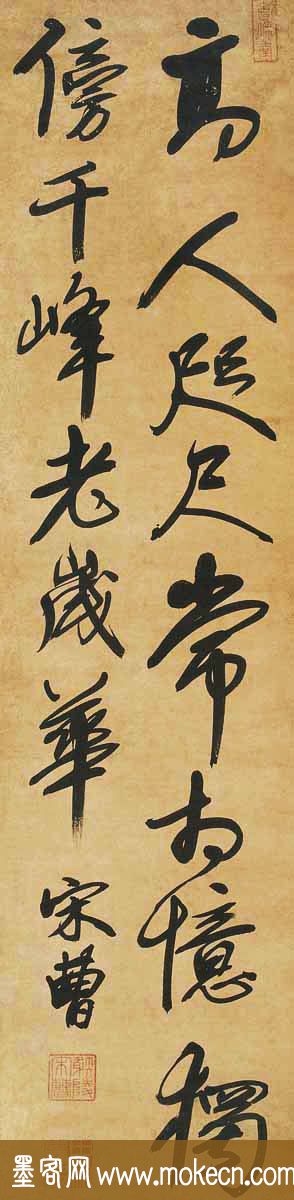 高人咫尺常相憶獨
傍千峰老歲華
宋曹
墨客网 www.mokecn.com